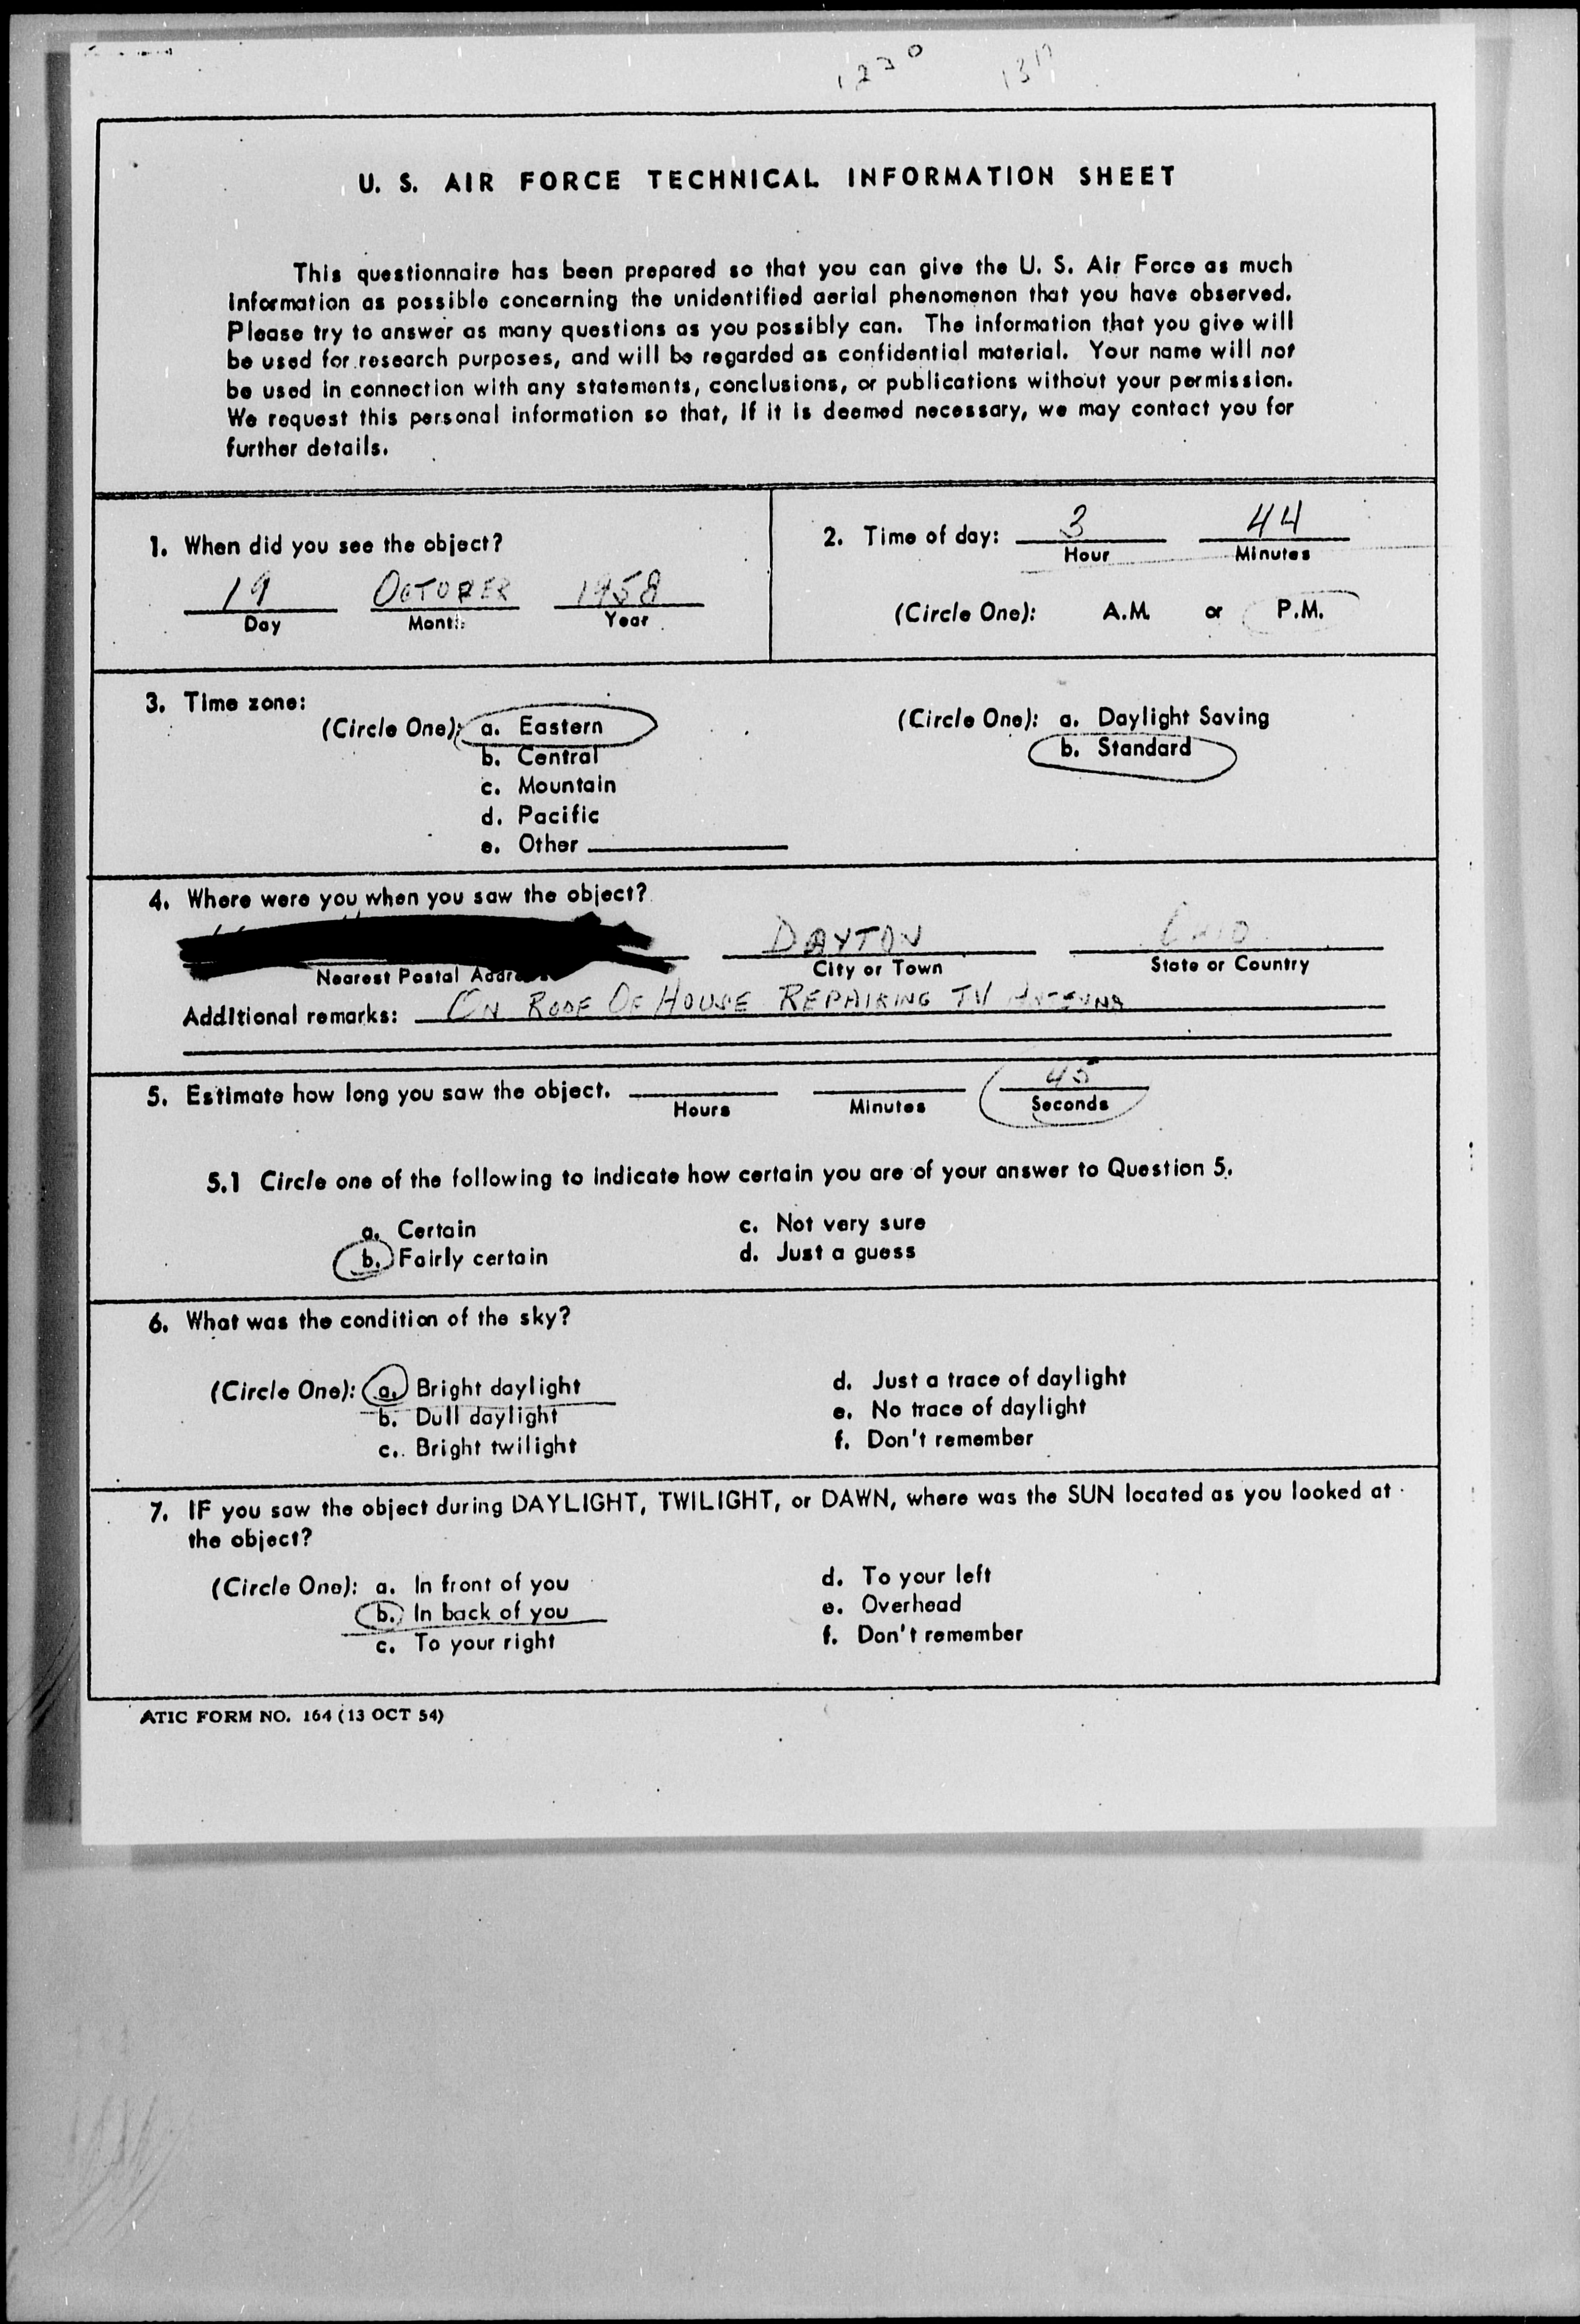 U. S. AIR FORCE TECHNICAL INFORMATION SHEET
This questionnaire has been prepared so that you can give the U. S. Air Force as much
information as possible concerning the unidentified aerial phenomenon that you have observed.
Please try to answer as many questions as you possibly can. The information that you give will
be used for research purposes, and will be regarded as confidential material. Your name will not
be used in connection with any statements, conclusions, or publications without your permission.
We request this personal information so that, if it is deemed necessary, we may contact you for
further details.
1. When did you see the object?
19 OCTOBER 1958
Day Month Year
2. Time of day: 3 44
Hour Minutes
(Circle One): A.M. or P.M.
3. Time zone:
(Circle One): a. Eastern
b. Central
c. Mountain
d. Pacific
e. Other
(Circle One): a. Daylight Saving
b. Standard
4. Where were you when you saw the object?
DAYTON OHIO
Nearest Postal Address City or Town State or Country
Additional remarks: ON ROOF OF HOUSE REPAIRING TV ANTENNA
5. Estimate how long you saw the object. 45
Hours Minutes Seconds
5.1 Circle one of the following to indicate how certain you are of your answer to Question 5.
a. Certain
b. Fairly certain
c. Not very sure
d. Just a guess
6. What was the condition of the sky?
(Circle One): a. Bright daylight
b. Dull daylight
c. Bright twilight
d. Just a trace of daylight
e. No trace of daylight
f. Don't remember
7. IF you saw the object during DAYLIGHT, TWILIGHT, or DAWN, where was the SUN located as you looked at
the object?
(Circle One): a. In front of you
b. In back of you
c. To your right
d. To your left
e. Overhead
f. Don't remember
ATIC FORM NO. 164 (13 OCT 54)